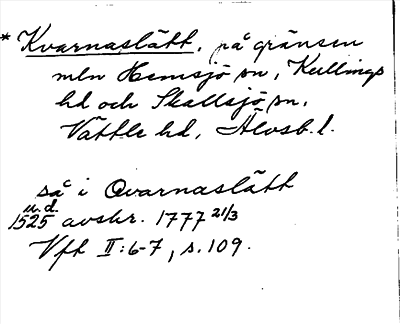 * Kvarnaslätt, på gränsen
mln Hemsjö sn, Kullings
hd och Skallsjö sn,
Vättle hd, Älvsb. l.
så i Qvarnaslätt
u.d.
1525 avskr. 1777 21/3
Vfk II:6-7, s. 109.